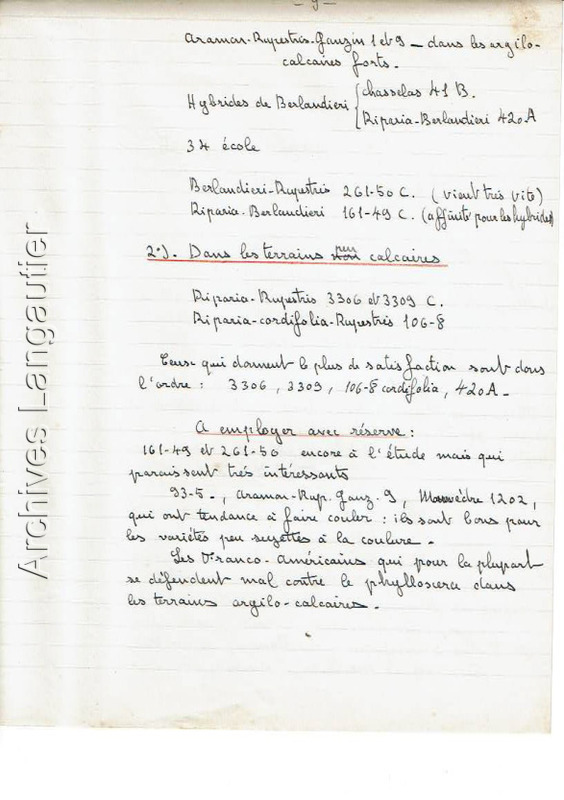 - 9 -
Aramon-Rupestris-Ganzin 1 et 9 — dans les argilo-
calcaires forts.
Hybrides de Berlandieri { chasselas 41 B.
Riparia-Berlandieri 420A
34 école
Berlandieri-Rupestris 261-50 C. (vient très vite)
Riparia-Berlandieri 161-49 C. (affinité pour les hybrides)
2°). Dans les terrains peu calcaires
Riparia-Rupestris 3306 et 3309 C.
Riparia-cordifolia-Rupestris 106-8
Ceux qui donnent le plus de satisfaction sont dans
l'ordre : 3306, 3309, 106-8 cordifolia, 420A.
A employer avec réserve :
161-49 et 261-50 encore à l'étude mais qui
paraissent très intéressants
93-5., Aramon-Rup. Ganz. 9, Mourvèdre 1202,
qui ont tendance à faire couler : ils sont bons pour
les variétés peu sujettes à la coulure.
Les Franco-Américains qui pour la plupart
se défendent mal contre le phylloxera dans
les terrains argilo-calcaires.
Archives Langautier